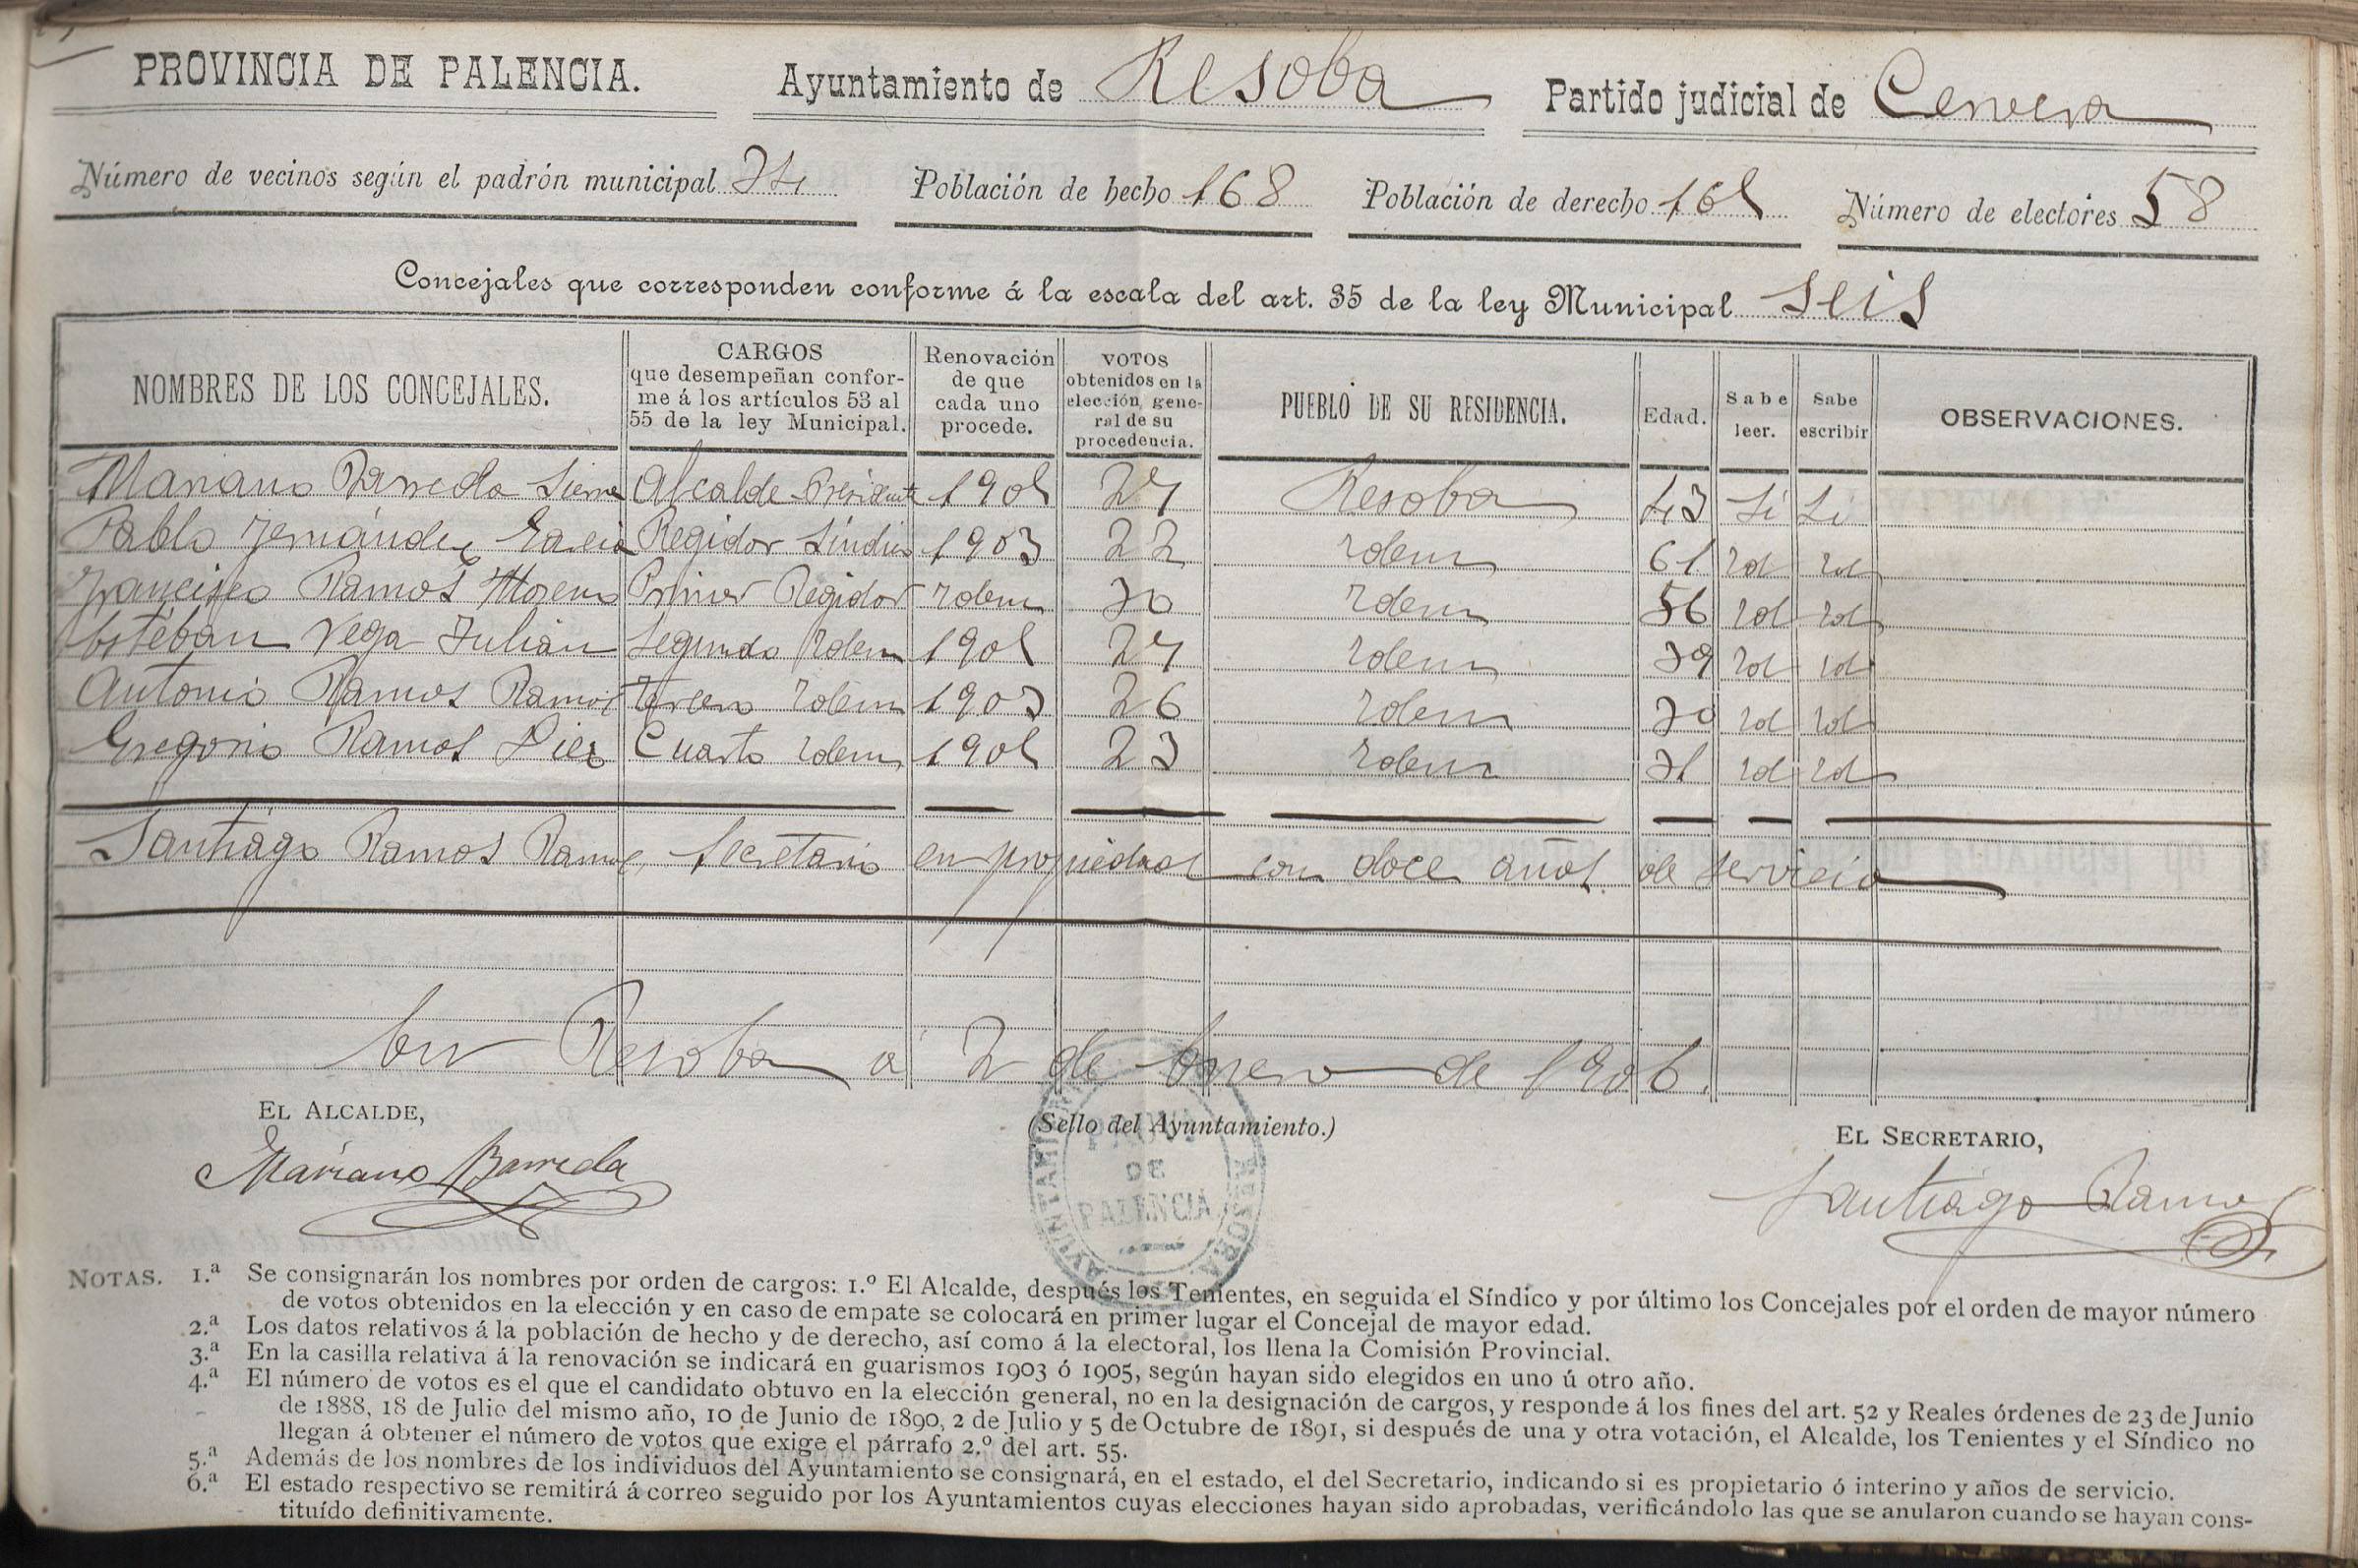 PROVINCIA DE PALENCIA. Ayuntamiento de Resoba Partido judicial de Cervera
Número de vecinos según el padrón municipal 34 Población de hecho 168 Población de derecho 165 Número de electores 58
Concejales que corresponden conforme á la escala del art. 35 de la ley Municipal Seis
NOMBRES DE LOS CONCEJALES.
CARGOS
que desempeñan confor-
me á los artículos 53 al
55 de la ley Municipal.
Renovación
de que
cada uno
procede.
VOTOS
obtenidos en la
elección gene-
ral de su
procedencia.
PUEBLO DE SU RESIDENCIA.
Edad.
Sabe
leer.
Sabe
escribir
OBSERVACIONES.
Mariano Barreda Sierra Alcalde Presidente 1905 27 Resoba 43 Si Si
Pablo Fernández García Regidor Síndico 1903 22 Idem 61 Id Id
Francisco Ramos Moreno Primer Regidor Idem 30 Idem 56 Id Id
Estéban Vega Julián Segundo Idem 1905 27 Idem 39 Id Id
Antonio Ramos Ramos Tercero Idem 1903 26 Idem 30 Id Id
Gregorio Ramos Diez Cuarto Idem 1905 23 Idem 31 Id Id
Santiago Ramos Ramos, Secretario en propiedad con doce años de servicio
En Resoba a 2 de Enero de 1906.
EL ALCALDE,
(Sello del Ayuntamiento.)
EL SECRETARIO,
Mariano Barreda
AYUNTAMIENTO RESOBA
PROVA
DE
PALENCIA
Santiago Ramos
NOTAS. 1.ª Se consignarán los nombres por orden de cargos: 1.º El Alcalde, después los Tenientes, en seguida el Síndico y por último los Concejales por el orden de mayor número
de votos obtenidos en la elección y en caso de empate se colocará en primer lugar el Concejal de mayor edad.
2.ª Los datos relativos á la población de hecho y de derecho, así como á la electoral, los llena la Comisión Provincial.
3.ª En la casilla relativa á la renovación se indicará en guarismos 1903 ó 1905, según hayan sido elegidos en uno ú otro año.
4.ª El número de votos es el que el candidato obtuvo en la elección general, no en la designación de cargos, y responde á los fines del art. 52 y Reales órdenes de 23 de Junio
de 1888, 18 de Julio del mismo año, 10 de Junio de 1890, 2 de Julio y 5 de Octubre de 1891, si después de una y otra votación, el Alcalde, los Tenientes y el Síndico no
llegan á obtener el número de votos que exige el párrafo 2.º del art. 55.
5.ª Además de los nombres de los individuos del Ayuntamiento se consignará, en el estado, el del Secretario, indicando si es propietario ó interino y años de servicio.
6.ª El estado respectivo se remitirá á correo seguido por los Ayuntamientos cuyas elecciones hayan sido aprobadas, verificándolo las que se anularon cuando se hayan cons-
tituído definitivamente.